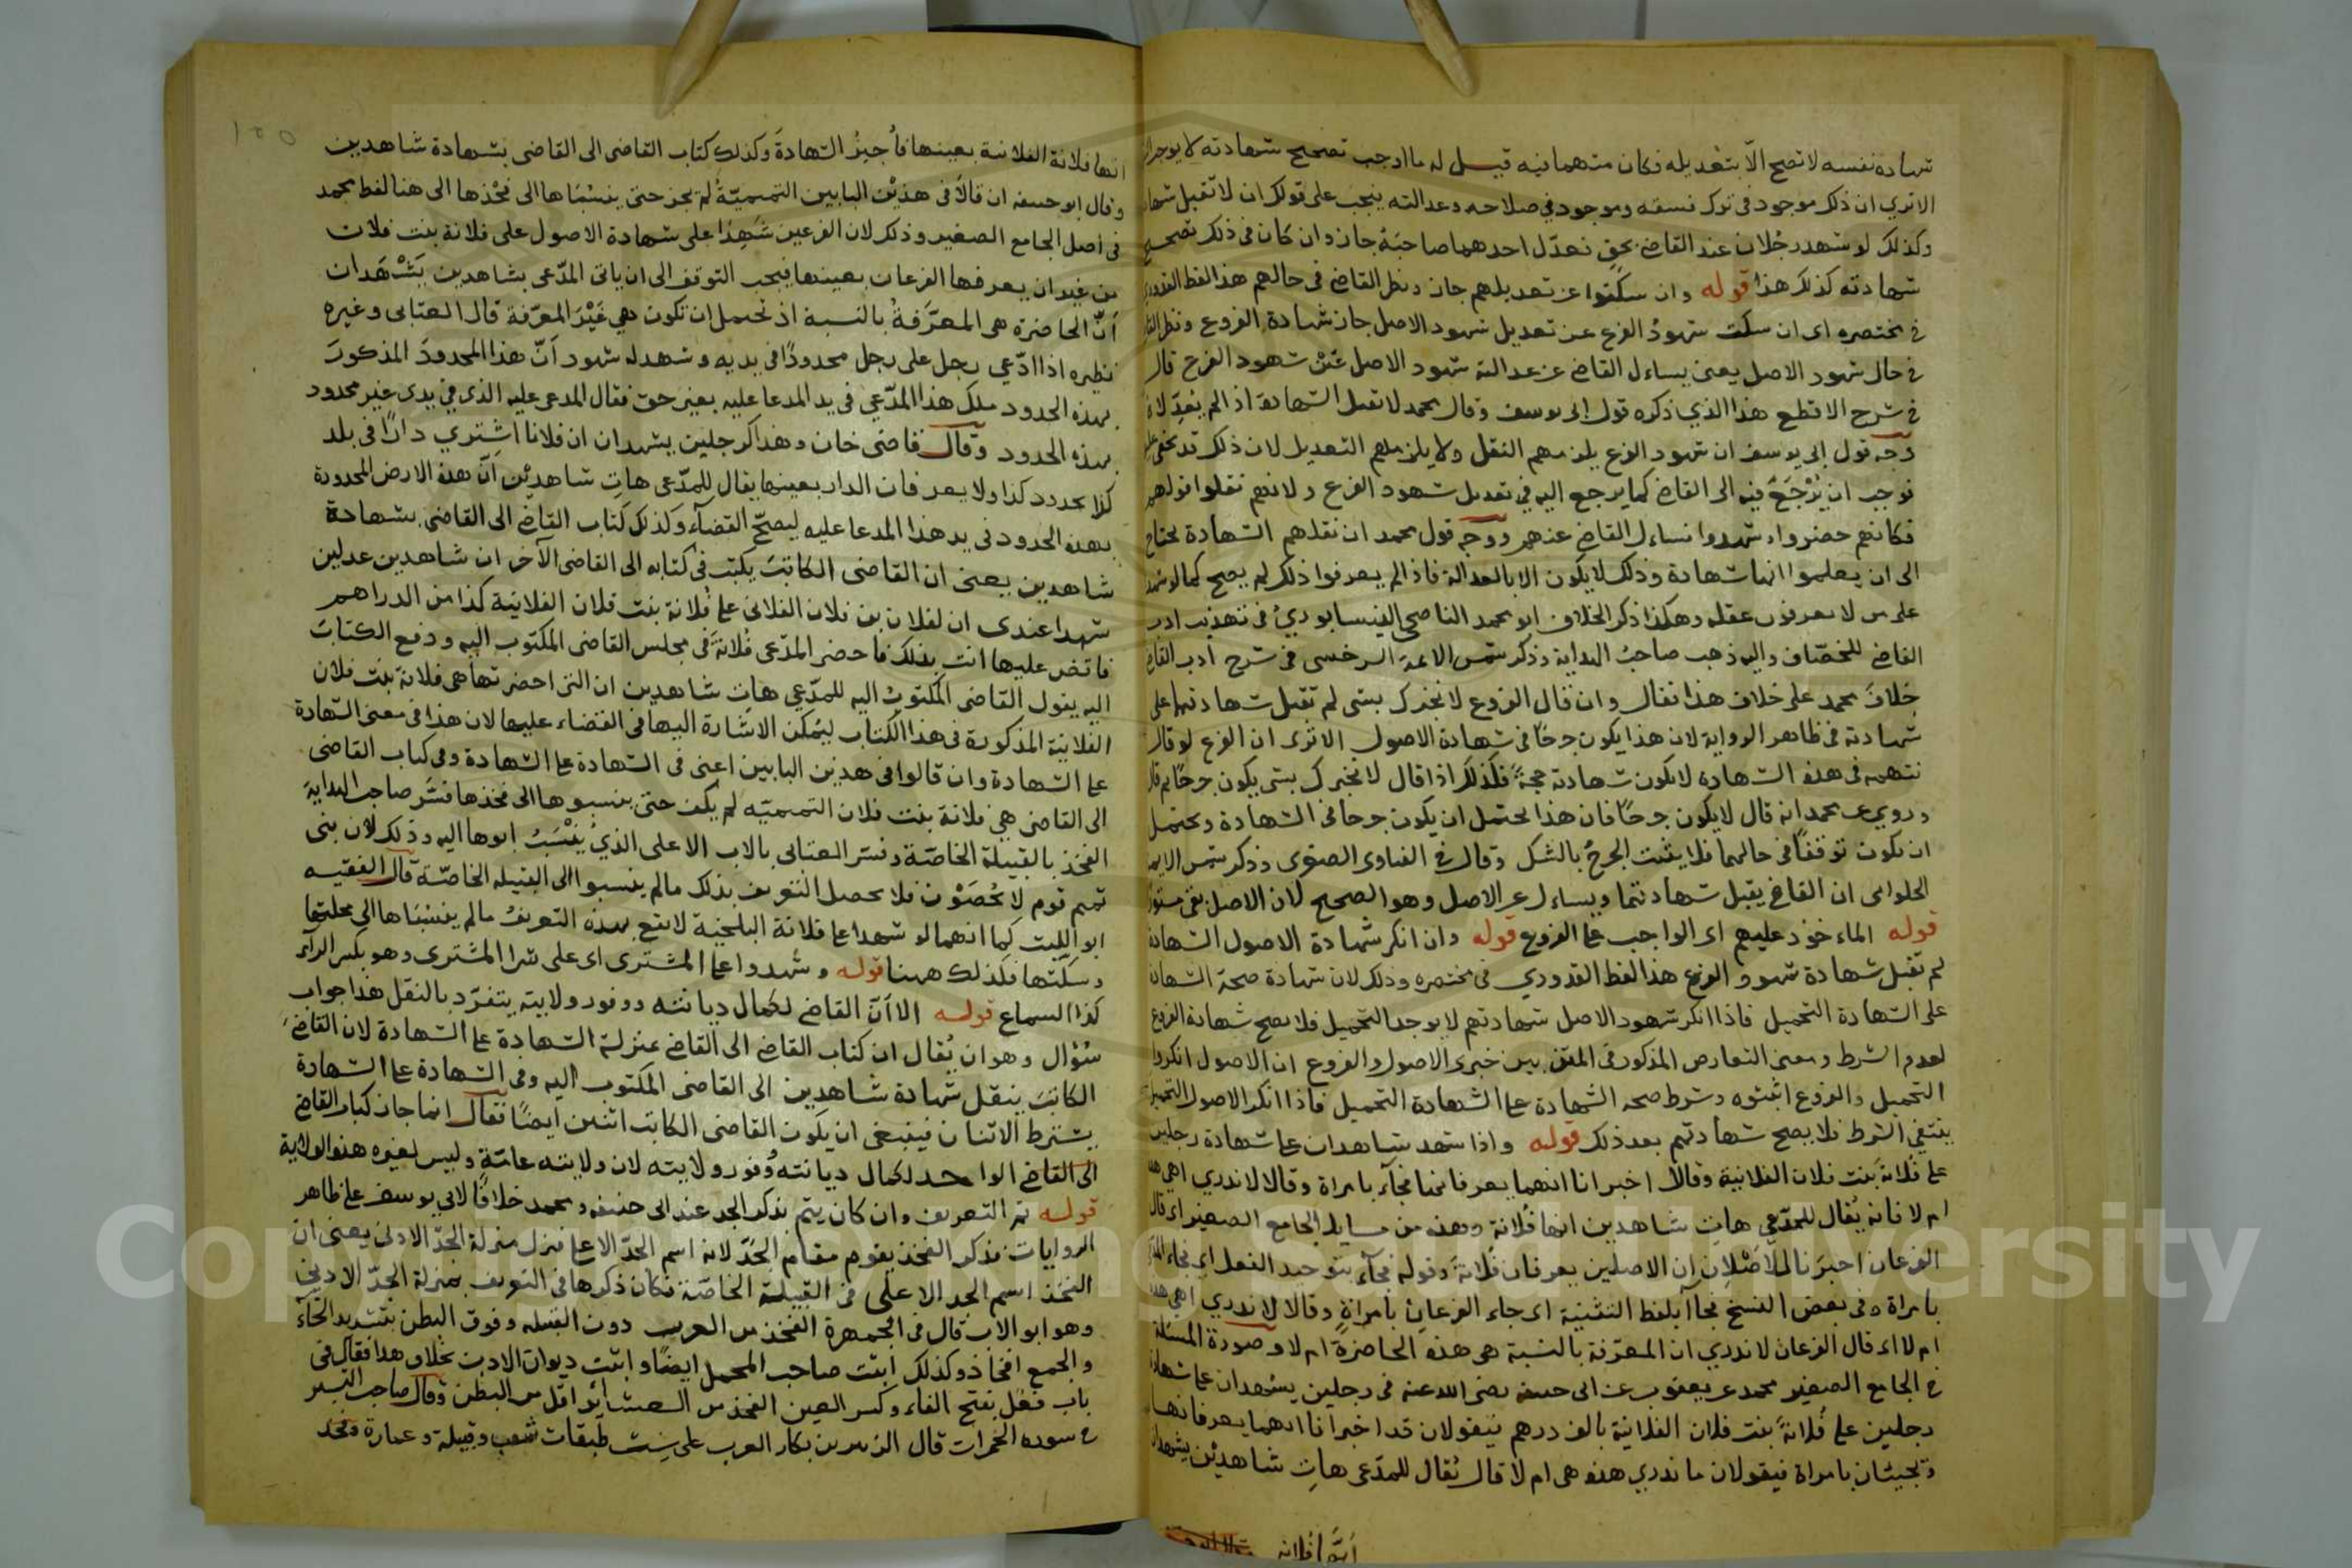 شهادة نفسه لا تصح الا بتعديله فكان متهما فيه قيل له ما اوجب تصحيح شهادته لا يوجب
الا ترى ان ذلك موجود فى ترك فسقه وموجود في صلاحه وعدالته فيجب على قولك ان لا تقبل شهاد
وكذلك لو شهد رجلان عند القاضي بحق فعدّل احدهما صاحبَهُ جاز وان كان في ذلك تصحيح
شهادته كذلك هذا قوله وان سكتوا عن تعديلهم جاز ونظر القاضي في حالهم هذا لفظ القدوري
في مختصره اى ان سكت شهودُ الفرع عن تعديل شهود الاصل جاز شهادة الفروع ونظر القا
في حال شهود الاصل يعنى يساءل القاضي عن عدالة شهود الاصل غَيْرَ شهود الفرع قال
في شرح الاقطع هذا الذي ذكره قول ابى يوسف وقال محمد لا تقبل الشهادة اذا لم يُعدّلان
وجه قول ابى يوسف ان شهود الفرع يلزمهم النقل ولا يلزمهم التعديل لان ذلك قد يخفى عليهم
فوجب ان يُرْجَعَ فيه الى القاضي كما يرجع اليه في تعديل شهود الفرع ولانهم نقلوا قولهم
فكانهم حضروا وشهدوا فساءل القاضي عنهم ووجه قول محمد ان نقلهم الشهادة يحتاج
الى ان يعلموا انها شهادة وذلك لا يكون الا بالعدالة فاذا لم يعرفوا ذلك لم يصح كما لو شهد
على من لا يعرفون عقله وهكذا ذكر الخلاف ابو محمد الناصحى النيسابوريُ في تهذيب ادب
القاضي للخصّاف واليه ذهب صاحبُ الهداية وذكر شمس الائمة السرخسى في شرح ادب القاضي
خلافَ محمد على خلاف هذا فقال وان قال الفروع لا نخبرك بشي لم تقبل شهادتهما على
شهادته فى ظاهر الرواية لان هذا يكون جرحًا في شهادة الاصول الا ترى ان الفرع لو قال
نتهمه فى هذه الشهادة لا تكون شهادته حجةً فكذلك اذا قال لا نخبرك بشي يكون جرحًا
وروي عن محمد انه قال لا يكون جرحًا فان هذا يحتمل ان يكون جرحا في الشهادة ويحتمل
ان يكون توقفًا فى حالهما فلا يثبت الجرحُ بالشك وقال في الفتاوى الصغرى وذكر شمس الايمة
الحلواى ان القاضي يقبل شهادتهما ويساءل عن الاصل وهو الصحيح لان الاصل بقى مستورًا
قوله الماءخوذ عليهم اى الواجب على الفروع قوله وان انكر شهادة الاصول الشهادة
لم تقبل شهادة شهود الفرع هذا لفظ القدوري فى مختصره وذلك لان شهادة صحة الشهادة
على الشهادة التحميل فاذا انكر شهود الاصل شهادتهم لا يوجد التحميل فلا يصح شهادة الفروع
لعدم الشرط ومعنى التعارض المذكور في المتن بين خبرى الاصول والفروع ان الاصول انكروا
التحميل والفروع اثبتوه وشرط صحة الشهادة على الشهادة التحميل فاذا انكر الاصول التحميل
ينتفي الشرط فلا يصح شهادتهم بعد ذلك قوله واذا شهد شاهدان على شهادة رجلين
على فلانة بنت فلان الفلانية وقالا اخبرانا انهما يعرفانها فجآء بامراة وقالا لا ندري اهي هذه
ام لا فانه يُقال للمدّعي هاتِ شاهدين انها فُلانة وهذه من مسايل الجامع الصغير اى قال
الفرعان اخبَرَنا الاَصْلان ان الاصلين يعرفان فلانةَ وقوله فجآء بتوحيد الفعل اى فجاء المدّعي
بامراة وفى بعض النسخ فجآآ بلفظ التثنية اى جاء الفرعانِ بامراةٍ وقالا لا ندري اهي هذه
ام لا اى قال الفرعان لا ندري ان المعرّفة بالنسبة هى هذه الحاضرة ام لا وصورة المسئلة
في الجامع الصغير محمد عن يعقوب عن ابى حنيفة رضى الله عنه في رجلين يشهدان على شهادة
رجلين على فُلانةَ بنت فلان الفلانية بالف درهم فيقولان قد اخبرانا انهما يعرفانها
ويجيئان بامراة فيقولان ما ندري هذه هى ام لا قال يُقال للمدّعى هاتِ شاهدَيْن يشهدان
انها فلانة
١٥٥
انها فلانة الفلانية بعينها فأجيزُ الشهادةَ وكذلك كتاب القاضى الى القاضى بشهادة شاهدين
وقال ابو حنيفة ان قالا فى هذيْن البابين التميميّةُ لم يجز حتى ينسُبَاها الى فَخْذها الى هنا لفظ محمد
في اصل الجامع الصغير وذلك لان الفرعين شَهِدا على شهادة الاصول على فلانة بنت فلان
من غير ان يعرفها الفرعان بعينها فيجب التوقف الى ان ياتى المدّعى بشاهدين يَشْهَدان
اَنّ الحاضرة هى المعرَّفةُ بالنسبة اذ تحتمل ان تكون هي غَيْرَ المعرّفة قال العتابى وغيره
نظيره اذا ادّعي رجل على رجل محدودًا في يديه وشهد له شهود اَنّ هذا المحدودَ المذكورَ
بهذه الحدود ملك هذا المدّعي فى يد المدعا عليه بغير حق فقال المدعى عليه الذي في يدى غير محدود
بهذه الحدود وقال قاضى خان وهذا كرجلين يشهدان ان فلانا اشتري دارًا فى بلد
كذا بحدود كذا ولا يعرفان الدار بعينها يقال للمدّعى هاتِ شاهديْن اَنّ هذه الارض المحدودة
بهذه الحدود فى يد هذا المدعا عليه ليصحّ القضآء وكذلك كتاب القاضي الى القاضى بشهادة
شاهدين يعنى ان القاضى الكاتبَ يكتب في كتابه الى القاضى الآخر ان شاهدين عدلين
شهدا عندى ان لفلان بن فلان الفلانى على فُلانة بنت فلان الفلانية كذا من الدراهم
فاقض عليها انت بذلك فاحضر المدّعى فُلانةَ في مجلس القاضى المكتوب اليه ودفع الكتابَ
اليه يقول القاضى المكتوبُ اليه للمدّعي هاتِ شاهدين ان التى احضرتها هى فلانة بنت فلان
الفلانية المذكورة فى هذا الكتاب ليُمكن الاشارة اليها فى القضاء عليها لان هذا في معنى الشهادة
على الشهادة وان قالوا في هذين البابين اعنى فى الشهادة على الشهادة وفى كتاب القاضى
الى القاضى هي فلانة بنت فلان التميميّه لم يكف حتى ينسبوها الى فخذها فسّر صاحب الهداية
الفخذ بالقبيلة الخاصّة وفسّر العتابى بالاب الاعلى الذيُ يُنْسَبُ ابوها اليه وذلك لان بنى
تميم قوم لا يُحصَوْن فلا يحصل التعريف بذلك ما لم ينسبوا الى القبيله الخاصّة قال الفقيه
ابو الليث كما انهما لو شهدا على فلانة البلخية لا يقع بهذه التعريفُ ما لم ينسُبَاها الى محلتها
وسكّتها فكذلك ههنا قوله وشهدوا على المشترى اى على شرا المشترى وهو بكسر الرآء
كذا السماع قوله الا اَنّ القاضي لكمال ديانته ووفور ولايته يتفرّد بالنقل هذا جواب
سُؤال وهو ان يُقال ان كتاب القاضي الى القاضي بمنزلة الشهادة على الشهادة لان القاضيَ
الكاتبَ ينقل شهادة شاهدين الى القاضى المكتوب اليه وفى الشهادة على الشهادة
يشترط الاثنان فينبغى ان يكون القاضى الكاتب اثنين ايضًا فقال انما جاز كتاب القاضي
الى القاضي الواحد لكمال ديانته وُوفور ولايته لان ولايته عامّة وليس لغيره هذه الولاية
قوله ثم التعريف وان كان يتم بذكر الجد عند ابى حنيفة ومحمد خلافًا لابي يوسف على ظاهر
الروايات فذكر الفخذ يقوم مقام الجَدّ لانه اسم الجدّ الاعلى فنزل منزلة الجدّ الادنى يعنى ان
الفخذ اسم الجد الاعلى فى القبيلة الخاصّة فكان ذكرها فى التعريف بمنزلة الجدّ الادنى
وهو ابو الاب قال في الجمهرة الفخذ من العرب دون القبيله وفوق البطن بتشديد الخآء
والجمع افخاذ وكذلك اثبت صاحب المجمل ايضًا واثبت ديوان الادب بخلاف هذا فقال في
باب فَعِل بفتح الفاء وكسر العين الفخذ من العشائر اقل من البطن وقال صاحب التيسير
في سورة الحجرات قال الزبير بن بكار العرب على سِت طبقات شعب وقبيلة وعمارة وفخذ
Copyright © King Saud University